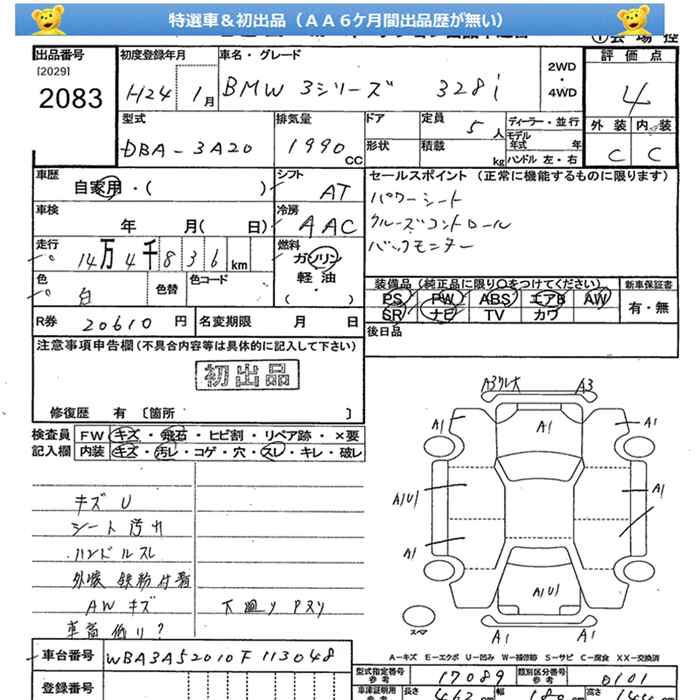 特選車＆初出品（ＡＡ６ケ月間出品歴が無い）
出品番号
[2029]
2083
初度登録年月
H24 1月
車名・グレード
BMW 3シリーズ 328i
2WD
・
4WD
評価点
4
外装 内装
C C
型式
DBA-3A20
排気量
1990 CC
ドア
形状
定員 5人
積載 kg
ディーラー・並行
モデル年式 年
ハンドル 左・右
車歴
自家用・( )
シフト
AT
車検
年 月( 日)
冷房
AAC
走行
14万4千836km
燃料
ガソリン
軽・油
( )
色
白
色替
色コード
R券 20610円
名変期限 月 日
セールスポイント (正常に機能するものに限ります)
パワーシート
クルーズコントロール
バックモニター
装備品(純正品に限り○をつけてください)
PS PW ABS エアB AW
SR ナビ TV カワ
新車保証書
有・無
後日品
注意事項申告欄(不具合内容等は具体的に記入して下さい)
初出品
修復歴 有 〔箇所 〕
検査員
記入欄
FW キズ・飛石・ヒビ割・リペア跡・×要
内装 キズ・汚レ・コゲ・穴・スレ・キレ・破レ
キズ U
シート汚れ
ハンドルスレ
外嬢 鉄粉付着
AWキズ 下廻りPスリ
車高低い?
A3 A3
A1 A1 A1
A1U1 A1
A1
A1U1
A1 A1
スペア
A-キズ E-エクボ U-凹み W-補修跡 S-サビ C-腐食 XX-交換済
車台番号 WBA3A52010F113048
登録番号
型式指定番号
参考
17089
類別区分番号
参考
0101
車庫証明用
長さ 462
幅 180
高さ